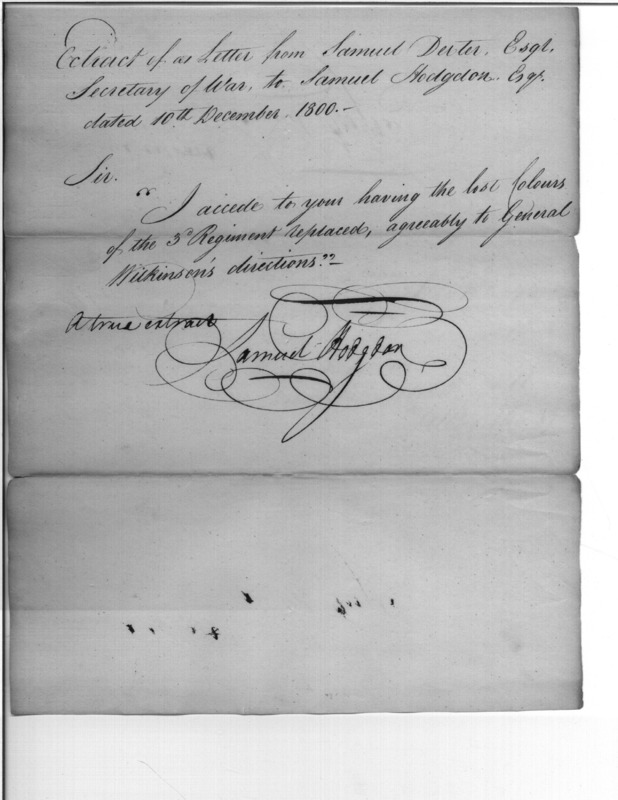 Extract of a Letter from Samuel Dexter, Esqr.
Secretary of War, to Samuel Hodgdon, Esqr.
dated 10th December, 1800.-
Sir.
"I accede to your having the lost Colours
of the 3d Regiment replaced, agreeably to General
Wilkinson's directions."-
A true extract
Samuel Hodgdon